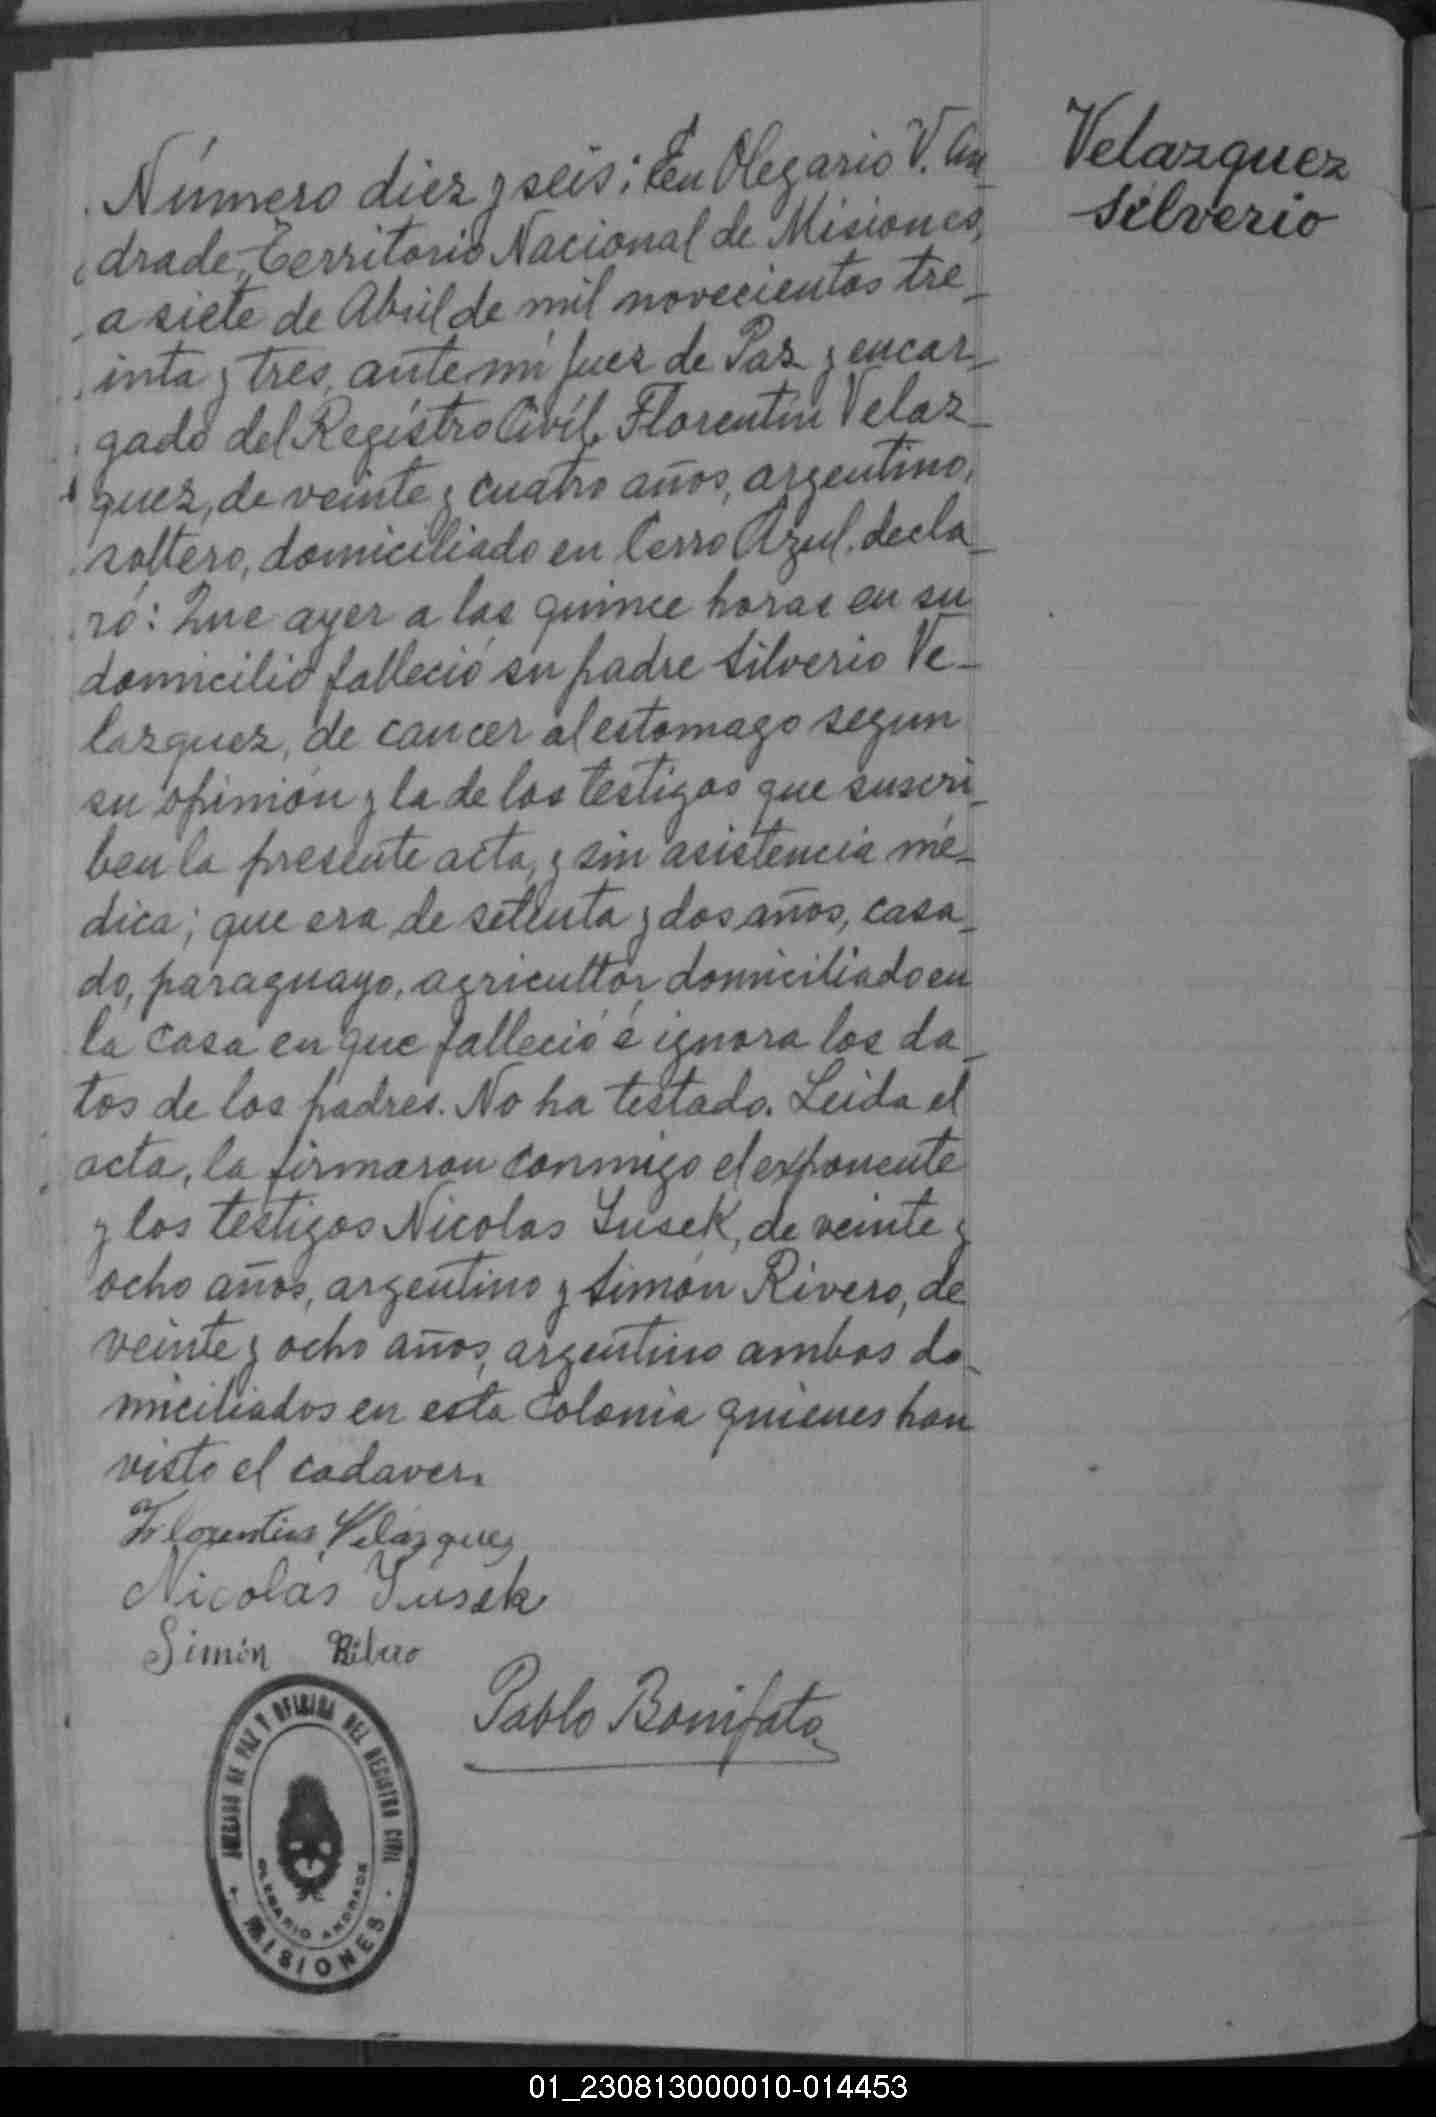 Velazquez
Silverio
Número diez y seis: En Olegario V. An-
drade, Territorio Nacional de Misiones,
a siete de Abril de mil novecientos tre-
inta y tres, ante mi Juez de Paz y encar-
gado del Registro Civil, Florentin Velaz-
quez, de veinte y cuatro años, argentino,
soltero, domiciliado en Cerro Azul, decla-
ró: Que ayer a las quince horas en su
domicilio falleció su padre Silverio Ve-
lazquez, de cancer al estomago segun
su opinión y la de los testigos que suscri-
ben la presente acta, y sin asistencia mé-
dica; que era de setenta y dos años, casa-
do, paraguayo, agricultor, domiciliado en
la casa en que falleció é ignora los da-
tos de los padres. No ha testado. Leida el
acta, la firmaron conmigo el exponente
y los testigos Nicolas Susek, de veinte y
ocho años, argentino y Simón Rivero, de
veinte y ocho años, argentino ambos do-
miciliados en esta Colonia quienes han
visto el cadaver.
Florentin Velazquez
Nicolás Susek
Simón Ribero
Pablo Bonifato
JUZGADO DE PAZ Y OFICINA DEL REGISTRO CIVIL
OLEGARIO ANDRADE
MISIONES
01_230813000010-014453